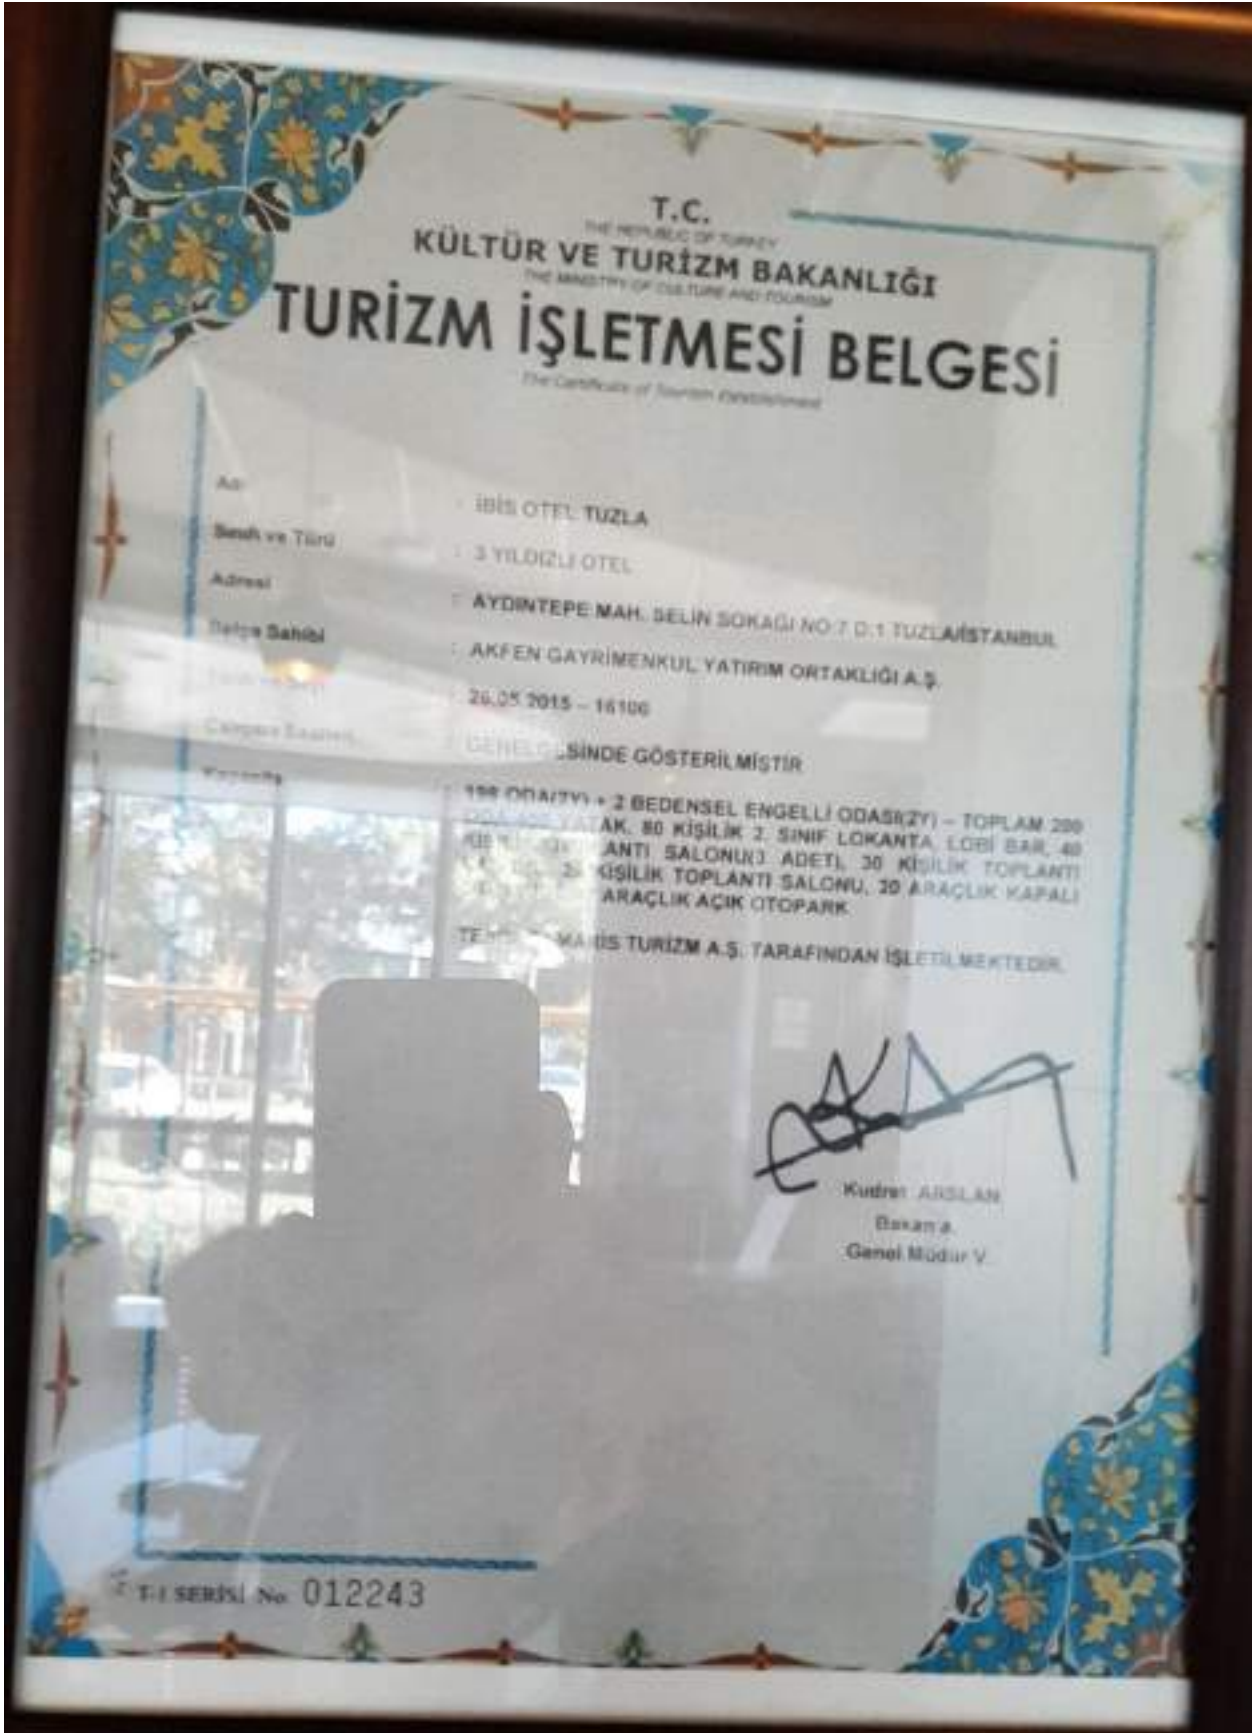 T.C.
THE REPUBLIC OF TURKEY
KÜLTÜR VE TURİZM BAKANLIĞI
THE MINISTRY OF CULTURE AND TOURISM
TURİZM İŞLETMESİ BELGESİ
The Certificate of Tourism Establishment
Adı : İBİS OTEL TUZLA
Sınıfı ve Türü : 3 YILDIZLI OTEL
Adresi : AYDINTEPE MAH. SELİN SOKAĞI NO:7 D:1 TUZLA/İSTANBUL
Belge Sahibi : AKFEN GAYRİMENKUL YATIRIM ORTAKLIĞI A.Ş.
26.05.2015 – 16106
SİNDE GÖSTERİLMİŞTİR
Kapasite : 198 ODA(2Y) + 2 BEDENSEL ENGELLİ ODASI(2Y) – TOPLAM 200
YATAK, 80 KİŞİLİK 2. SINIF LOKANTA, LOBİ BAR, 40
SALONU(3 ADET), 30 KİŞİLİK TOPLANTI
KİŞİLİK TOPLANTI SALONU, 20 ARAÇLIK KAPALI
ARAÇLIK AÇIK OTOPARK
TURİZM A.Ş. TARAFINDAN İŞLETİLMEKTEDİR.
Kudret ARSLAN
Bakan a.
Genel Müdür V.
T-1 SERİSİ No. 012243